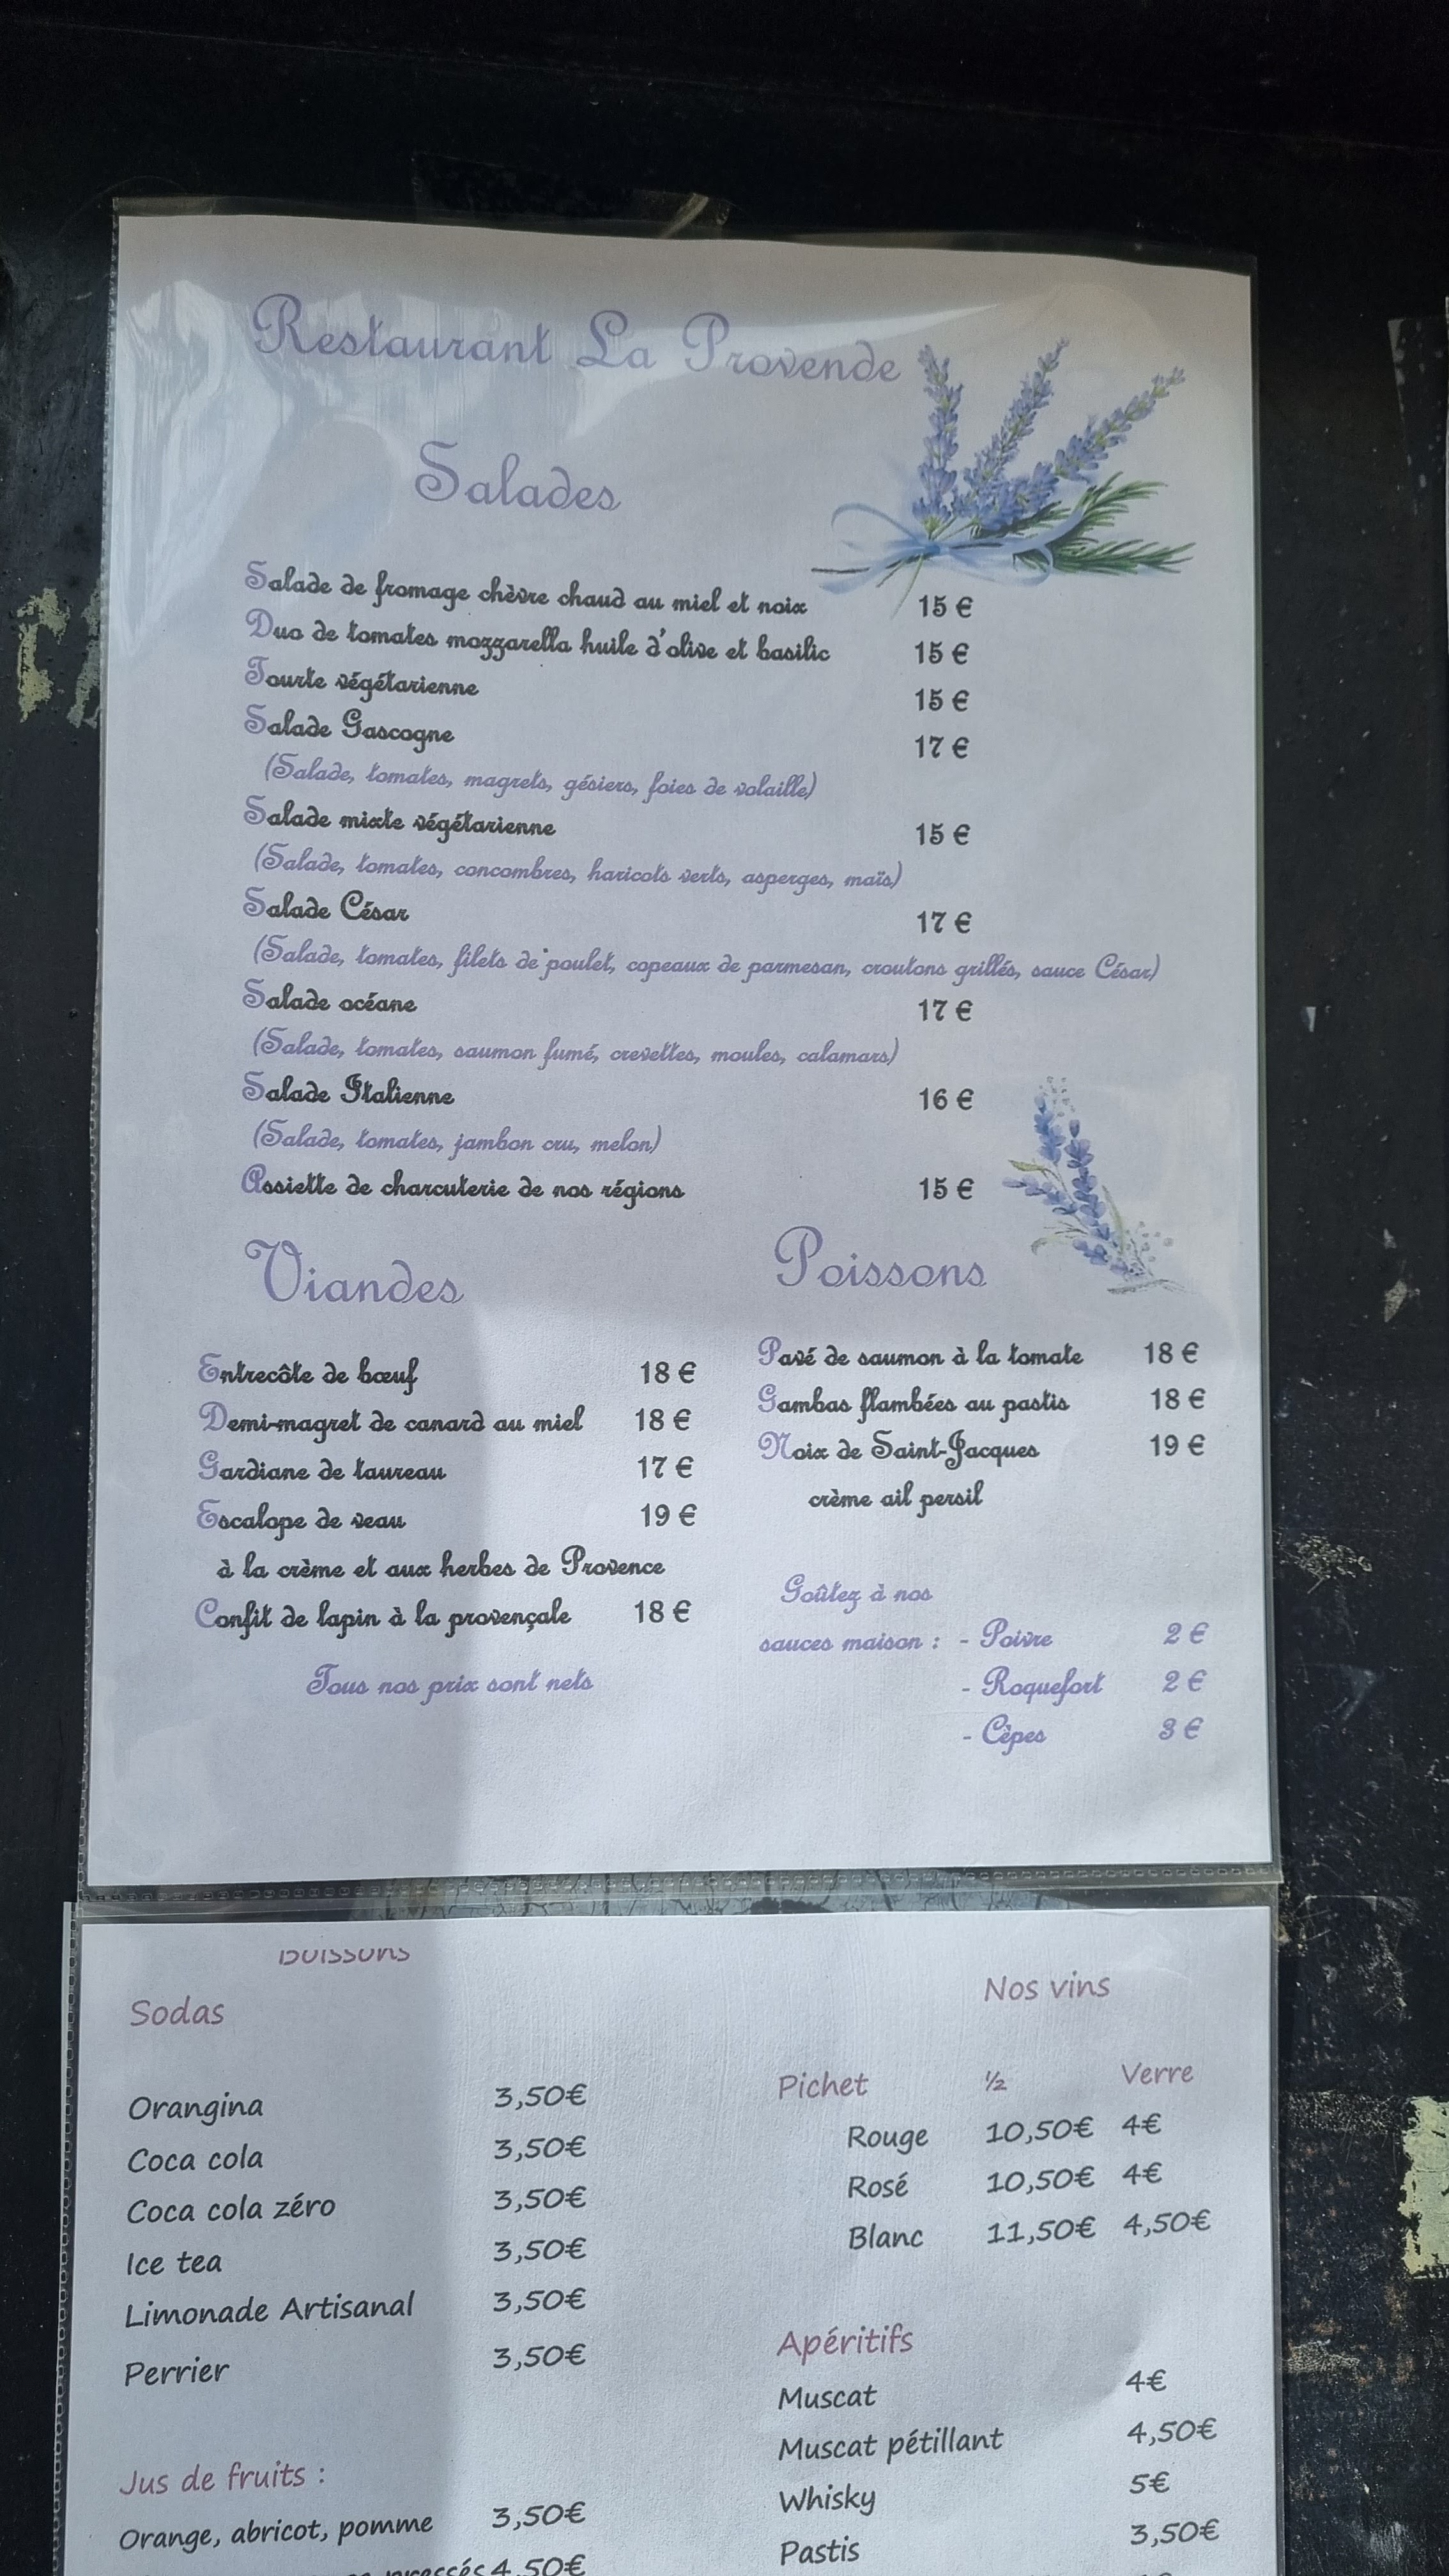 Restaurant La Provende
Salades
Salade de fromage chèvre chaud au miel et noix 15 €
Duo de tomates mozzarella huile d'olive et basilic 15 €
Tourte végétarienne 15 €
Salade Gascogne 17 €
(Salade, tomates, magrets, gésiers, foies de volaille)
Salade mixte végétarienne 15 €
(Salade, tomates, concombres, haricots verts, asperges, maïs)
Salade César 17 €
(Salade, tomates, filets de poulet, copeaux de parmesan, croutons grillés, sauce César)
Salade océane 17 €
(Salade, tomates, saumon fumé, crevettes, moules, calamars)
Salade Italienne 16 €
(Salade, tomates, jambon cru, melon)
Assiette de charcuterie de nos régions 15 €
Viandes
Entrecôte de bœuf 18 €
Demi-magret de canard au miel 18 €
Gardiane de taureau 17 €
Escalope de veau 19 €
à la crème et aux herbes de Provence
Confit de lapin à la provençale 18 €
Tous nos prix sont nets
Poissons
Pavé de saumon à la tomate 18 €
Gambas flambées au pastis 18 €
Noix de Saint-Jacques 19 €
crème ail persil
Goûtez à nos
sauces maison : - Poivre 2 €
- Roquefort 2 €
- Cèpes 3 €
Boissons
Sodas
Orangina 3,50€
Coca cola 3,50€
Coca cola zéro 3,50€
Ice tea 3,50€
Limonade Artisanal 3,50€
Perrier 3,50€
Jus de fruits :
Orange, abricot, pomme 3,50€
pressés 4,50€
Nos vins
Pichet ½ Verre
Rouge 10,50€ 4€
Rosé 10,50€ 4€
Blanc 11,50€ 4,50€
Apéritifs
Muscat 4€
Muscat pétillant 4,50€
Whisky 5€
Pastis 3,50€